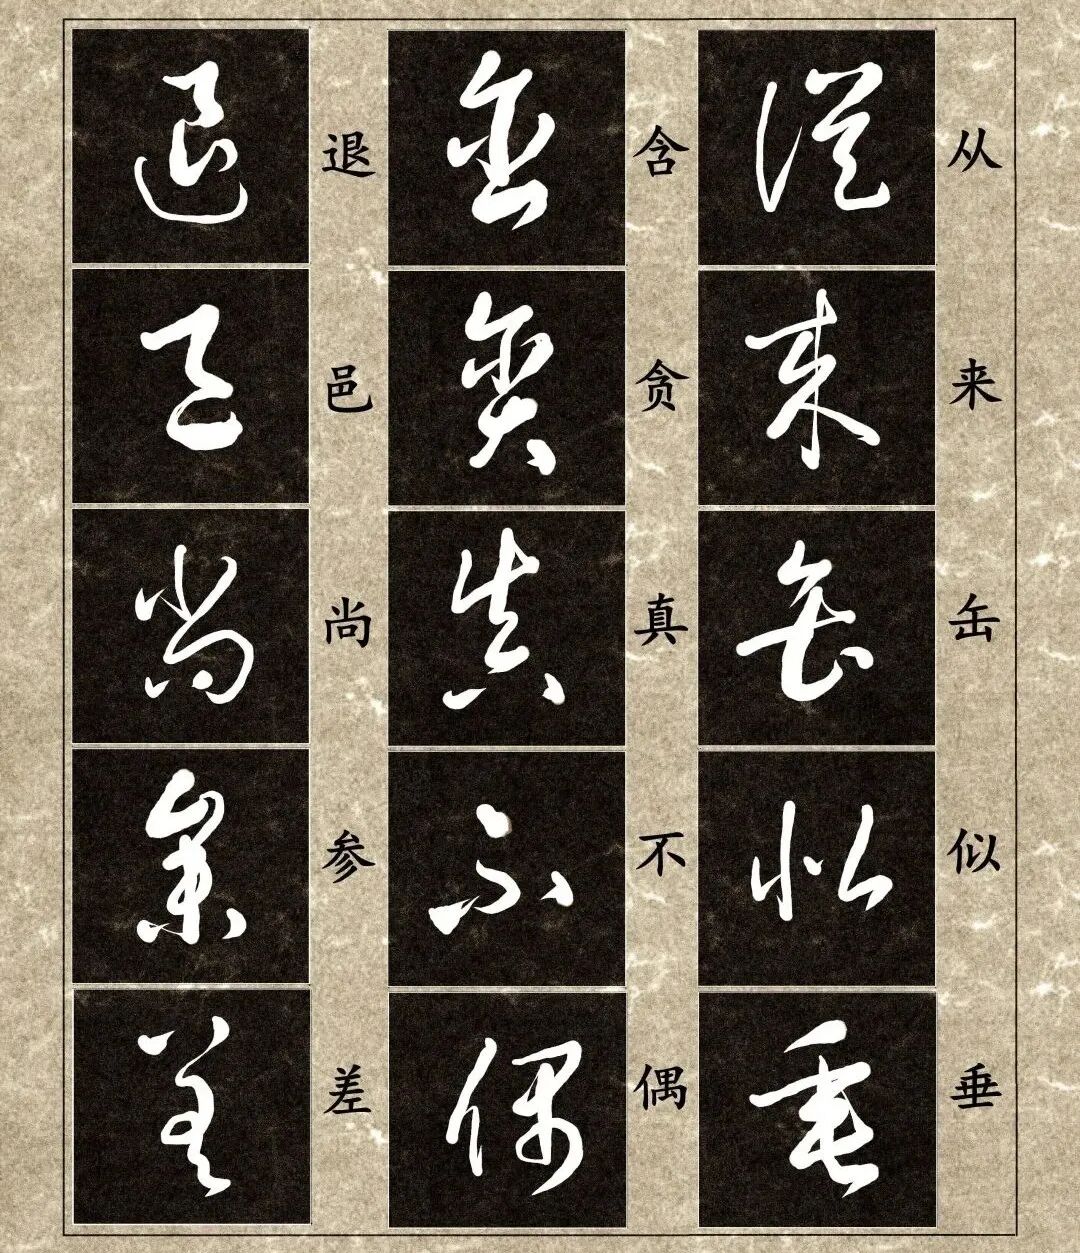 从来缶似垂
含贪真不偶
退邑尚参差